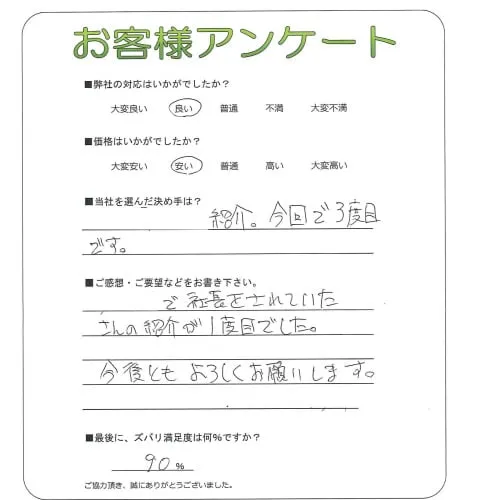 お客様アンケート
■弊社の対応はいかがでしたか？
大変良い 良い 普通 不満 大変不満
■価格はいかがでしたか？
大変安い 安い 普通 高い 大変高い
■当社を選んだ決め手は？
紹介。今回で3度目
です。
■ご感想・ご要望などをお書き下さい。
で社長をされていた
さんの紹介が1度目でした。
今後とも よろしくお願いします。
■最後に、ズバリ満足度は何％ですか？
90 %
ご協力頂き、誠にありがとうございました。